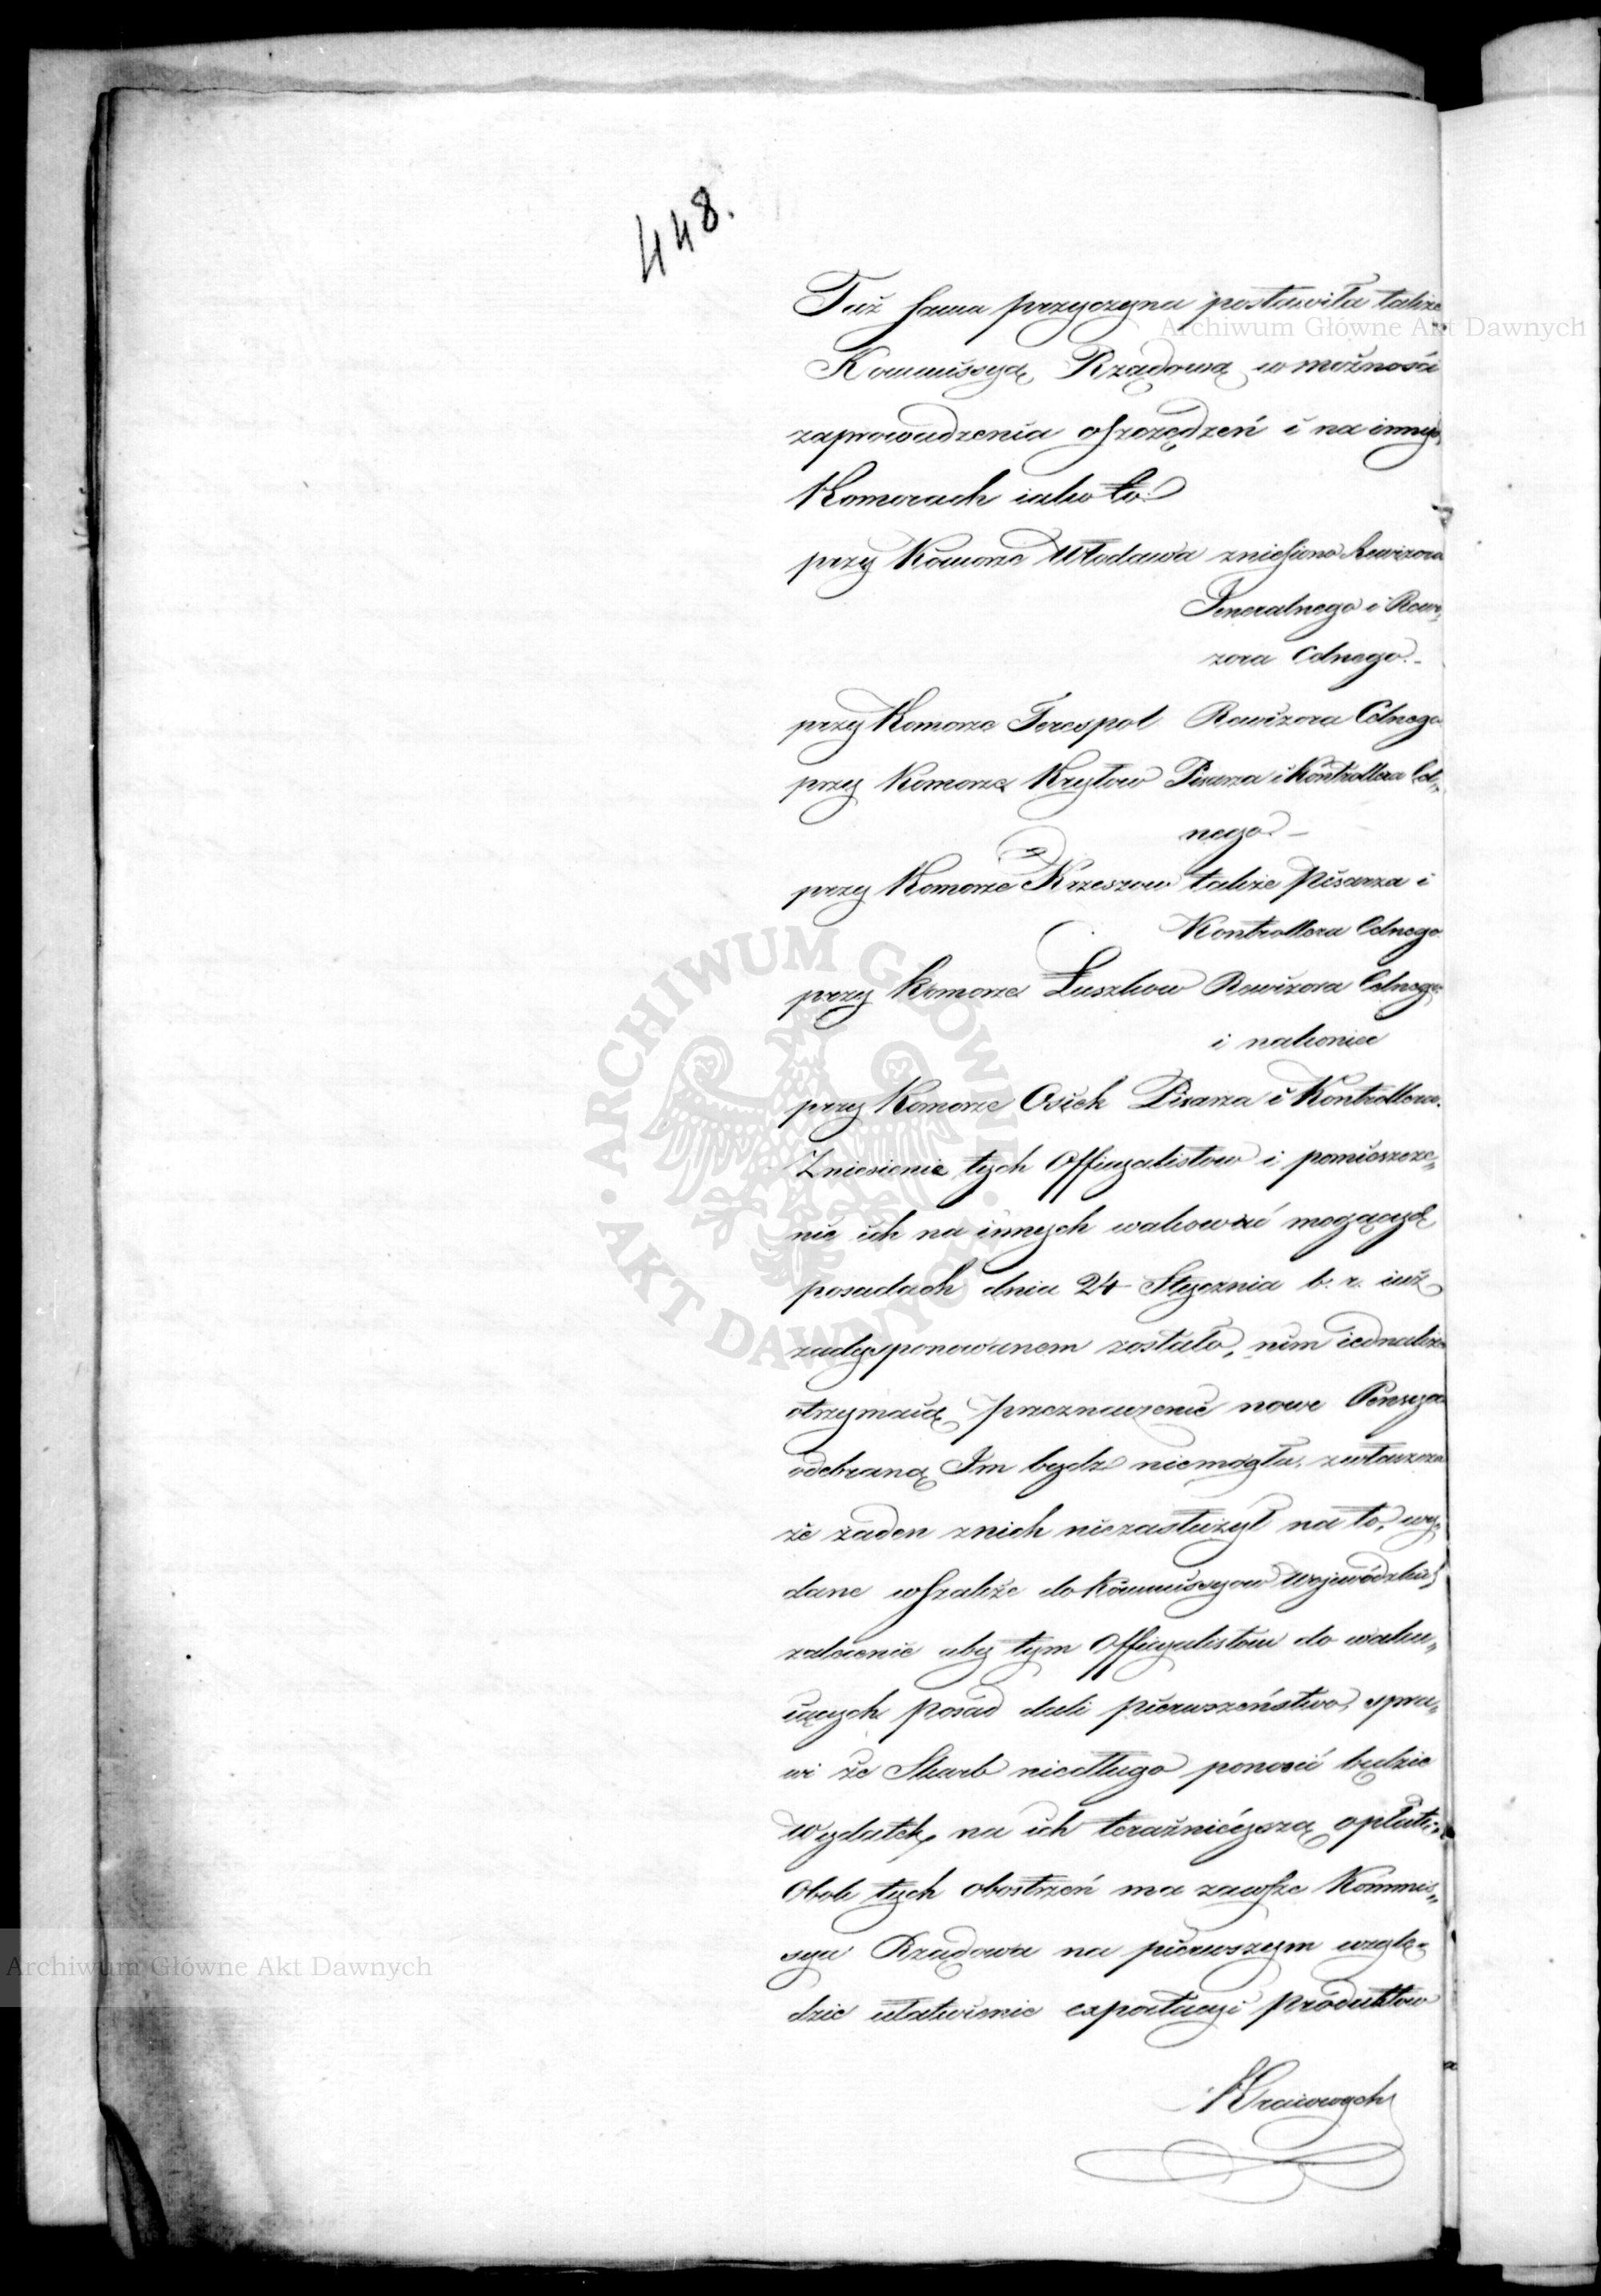 448.
Taż sama przyczyna postawiła także
Kommissyą Rządową w możności
zaprowadzenia oszczędzeń i na innych
Komorach iako to:
przy Komorze Włodawa zniesiono Rewizora
Generalnego i Rewi„
zora Celnego.-
przy Komorze Terespol Rewizora Celnego
przy Komorze Kryłow Pisarza i Kontrollera Cel„
nego.-
przy Komorze Krzeszow także Pisarza i
Kontrollera Celnego
przy Komorze Łuszkow Rewizora Celnego
i nakoniec
przy Komorze Osiek Pisarza i Kontrollera.
Zniesienie tych Officyalistow i pomieszcze„
nie ich na innych wakować mogących
posadach dnia 24 Stycznia b. r. iuż
zadysponowanem zostało, nim iednakże
otrzymaią przeznaczenie nowe Pensya
odebraną Im bydź niemogła, zwłaszcza
że żaden z nich niezasłużył na to, wy„
dane wszakże do Kommissyow Wojewódzkich
zalecenie aby tym Officyalistow do waku„
iących posad dali pierwszeństwo, spra„
wi że Skarb niedługo ponosić będzie
Wydatek na ich teraźnieyszą opłatę.
Obok tych obostrzeń ma zawsze Kommis„
sya Rządowa na pierwszym wzglę„
dzie ułatwienie exportacyi Produktow
Kraiowych
Archiwum Główne Akt Dawnych
Archiwum Główne Akt Dawnych
ARCHIWUM GŁÓWNE • AKT DAWNYCH •